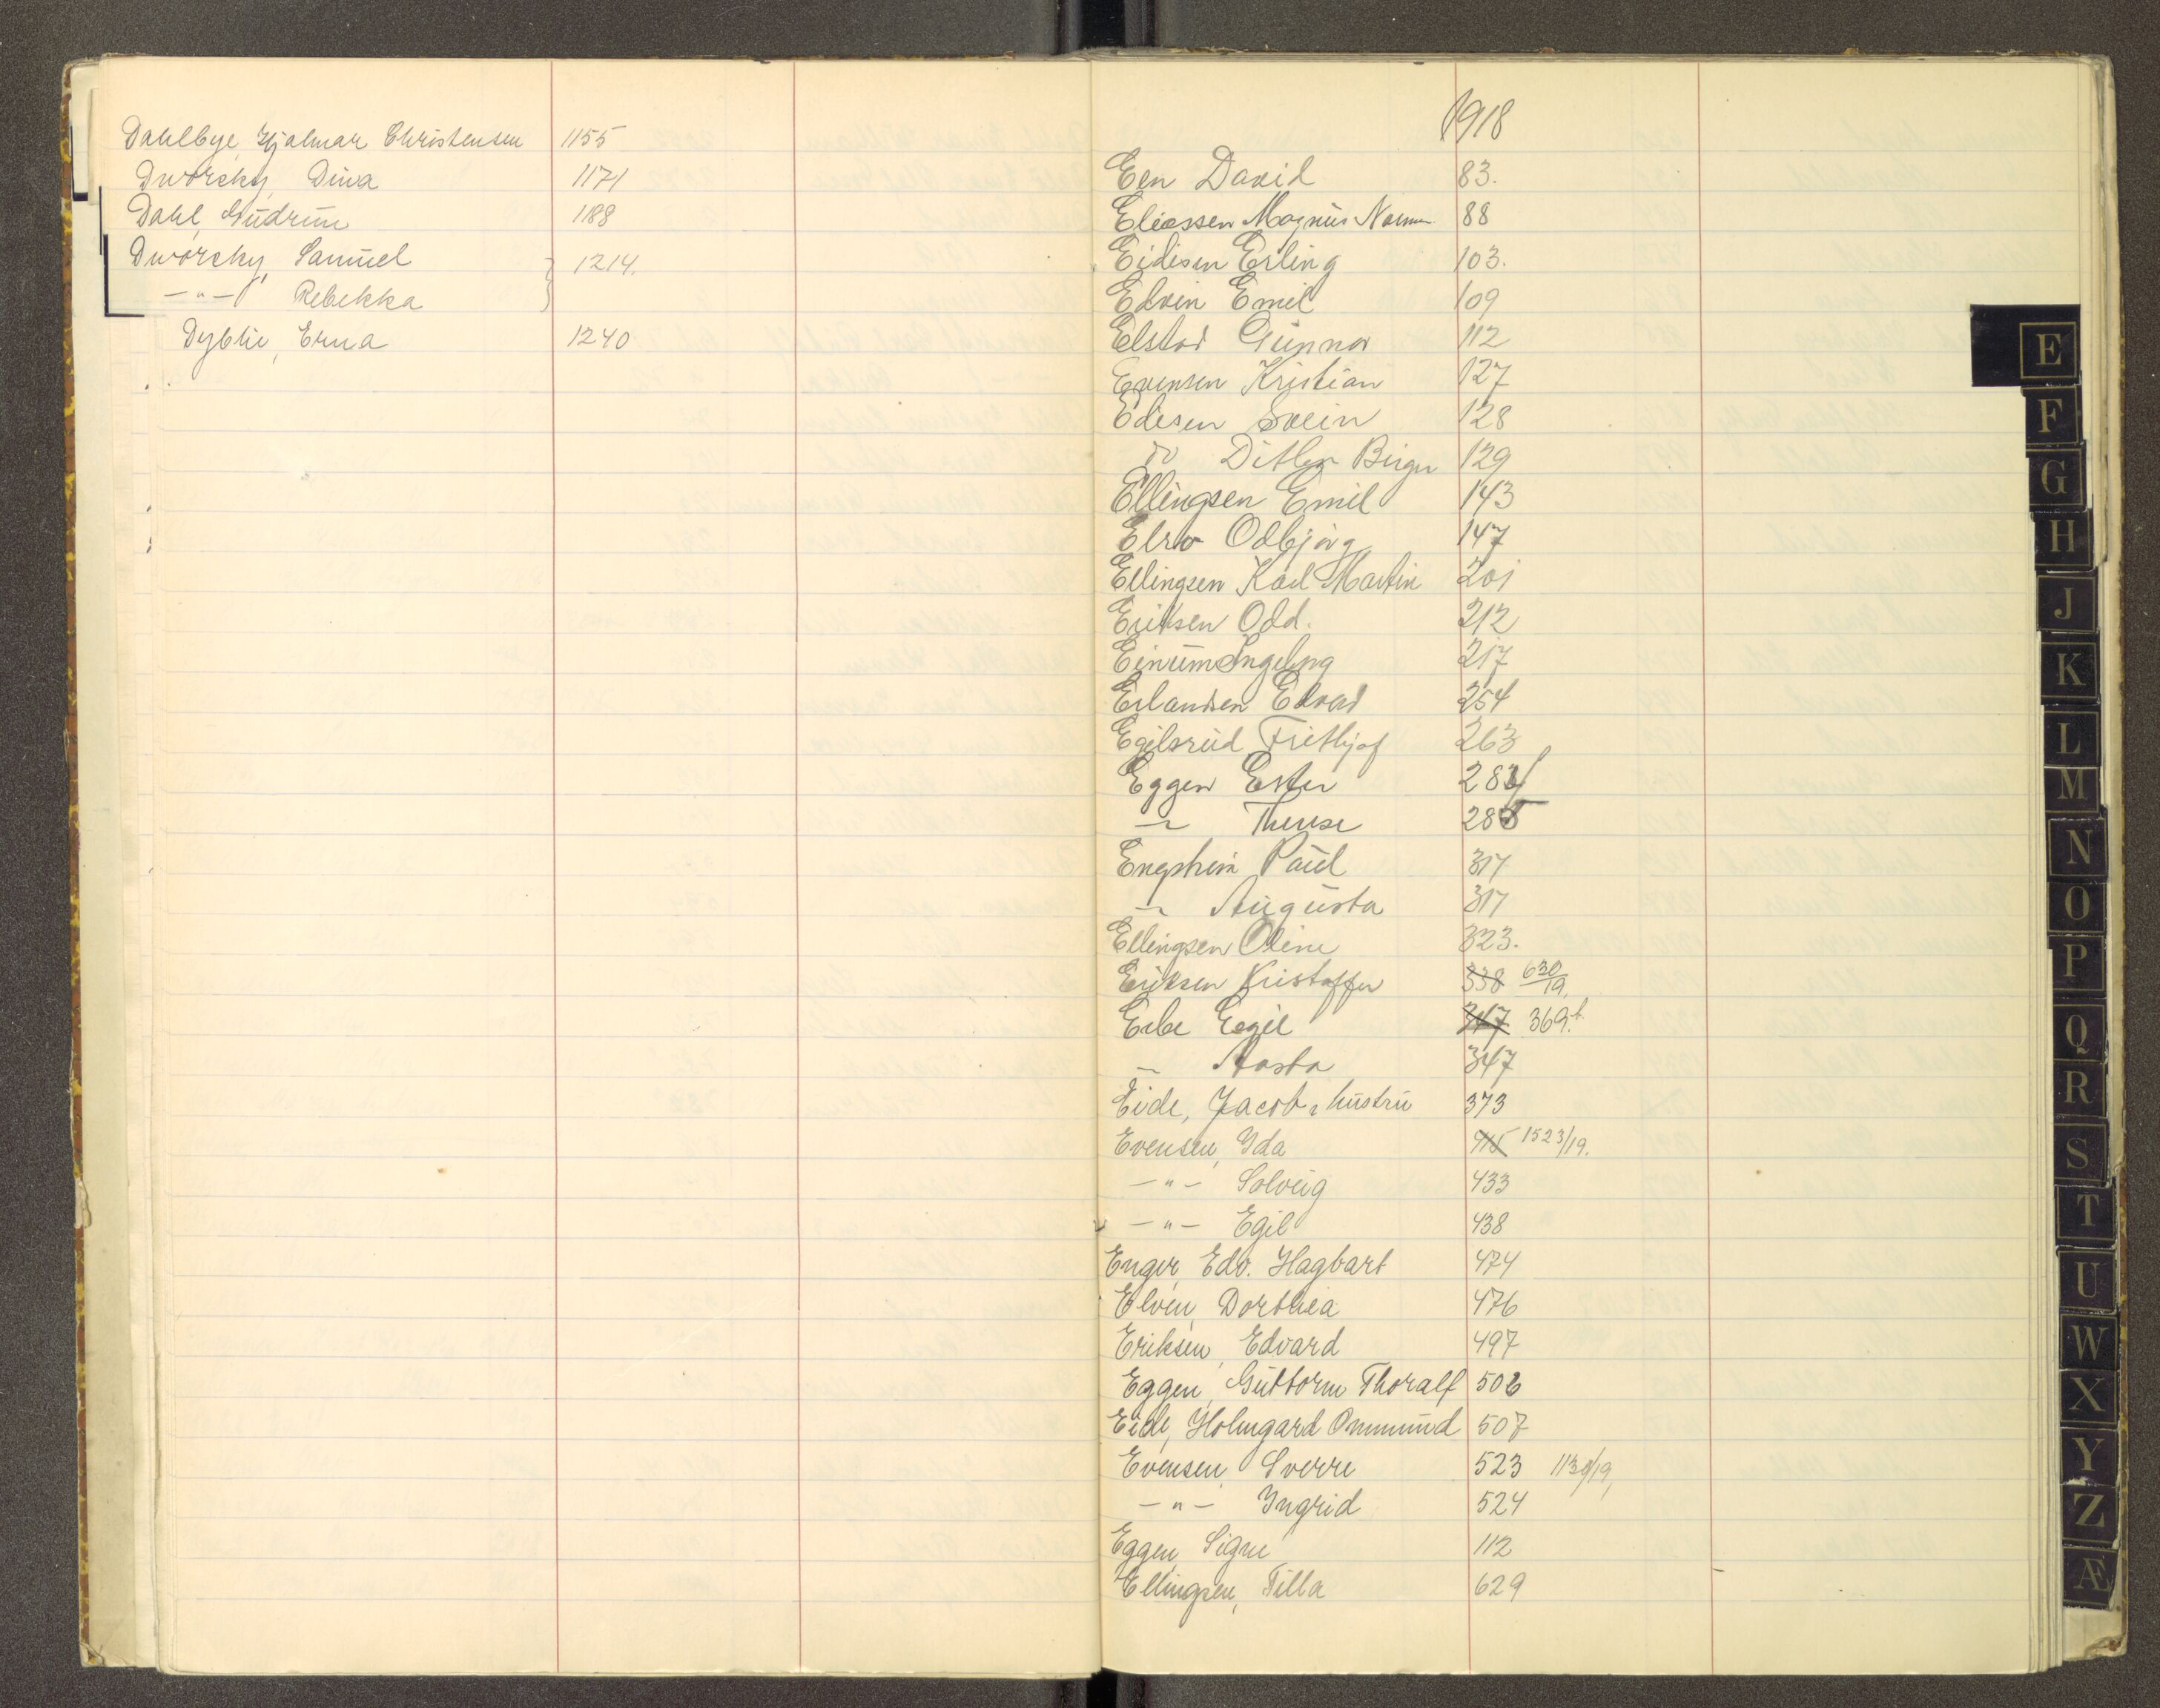 Dahlbye, Hjalmar Christensen 1155
Dworsky, Dina 1171
Dahl, Gudrun 1188
Dworsky, Samuel 1214.
—"— Rebekka
Erna 1240
1918
Een David 83.
Eliassen Magnus 88
Eidisen Erling 103.
Edvin Emil 109
Elstad Gunnar 112
Evensen Kristian 127
Edisen Svein 128
do Ditlev Birger 129
Ellingsen Emil 143
Odbjörg 147
Ellingsen Karl Martin 201
Eriksen Odd. 212
Einum Ingeborg 217
Erlandsen Edvard 254
Egilsrud Frithjof 263
Eggen Ester 284
— Therese 285
Paul 317
— Augusta 317
Ellingsen Oline 323.
Eriksen Kristoffer 338 630/19.
Erbe Egil 347 369.
— Aasta 347
Eide, Jacob, hustru 373
Evensen, Ida 415 1523/19.
—"— Solveig 433
—"— Egil 438
Enger, Edv. Hagbart 474
Elven, Dorthea 476
Eriksen, Edvard 497
Eggen, Guttorm Thoralf 506
Eide, Holmgard Ommund 507
Evensen, Sverre 523 1139/19,
—"— Ingrid 524
Eggen, Signe 112
Ellingsen, Tilla 629
E
F
G
H
J
K
L
M
N
O
P
Q
R
S
T
U
W
X
Y
Z
Æ